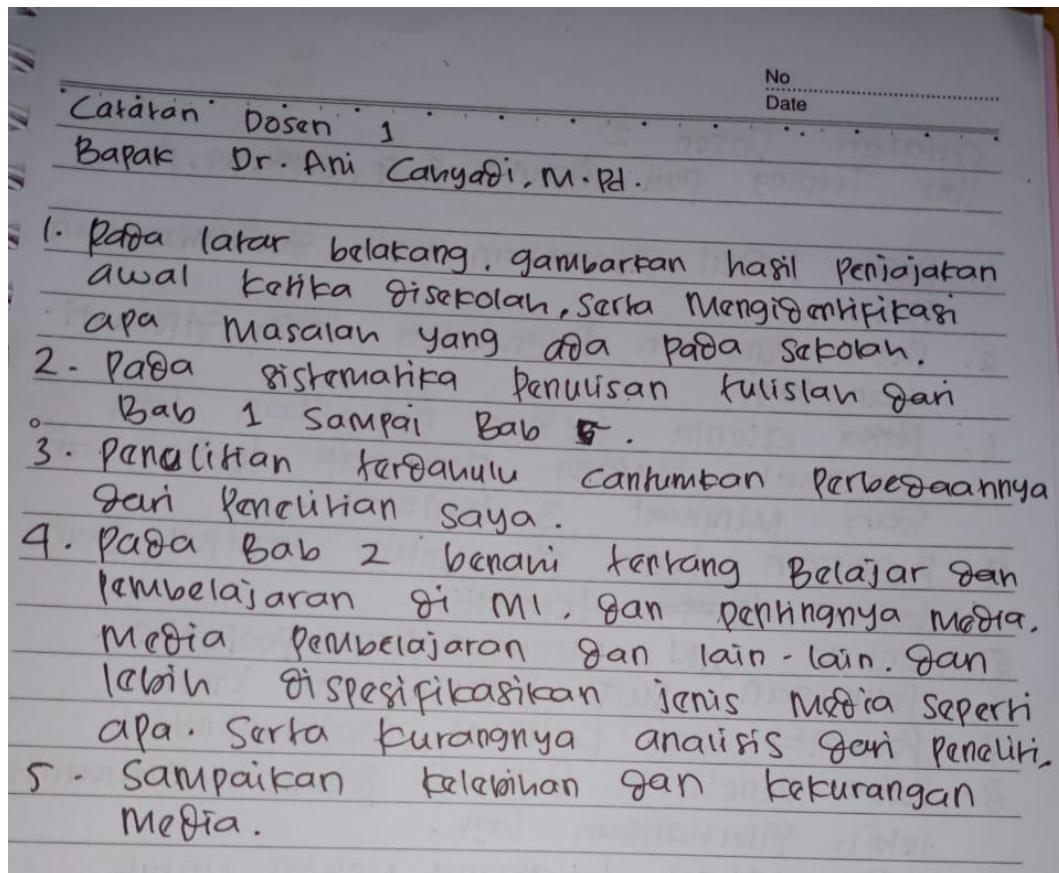 No
Date
Catatan Dosen 1
Bapak Dr. Ani Cahyadi, M.Pd.
1. Pada latar belakang, gambarkan hasil Penjajakan
awal ketika disekolah, serta Mengidentifikasi
apa Masalah yang ada pada sekolah.
2. Pada sistematika Penulisan tulislah dari
Bab 1 Sampai Bab 5.
3. Penelitian terdahulu cantumkan Perbedaannya
dari Penelitian saya.
4. Pada Bab 2 benahi tentang Belajar dan
Pembelajaran di MI, dan pentingnya Media.
Media Pembelajaran dan lain-lain. dan
lebih dispesifikasikan jenis Media seperti
apa. Serta kurangnya analisis dari Peneliti.
5. Sampaikan kelebihan dan kekurangan
Media.